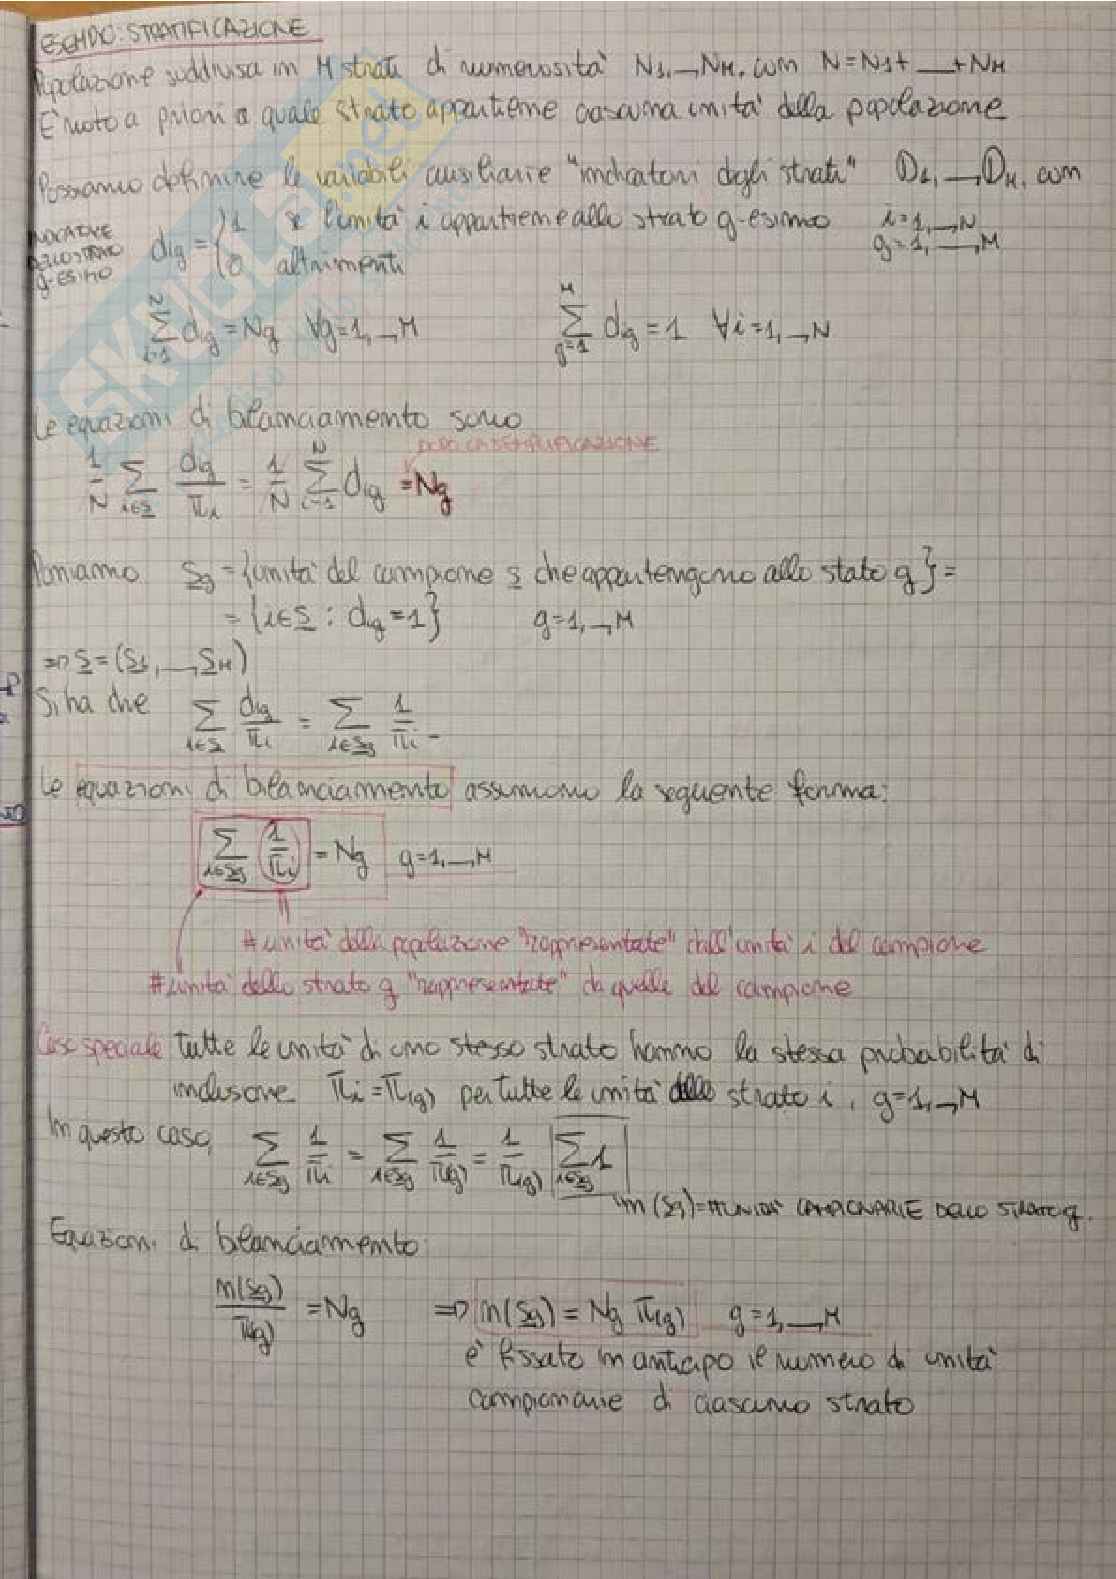 ESEMPIO: STRATIFICAZIONE
Popolazione suddivisa in M strati di numerosità N1, __, NM, con N=N1+ __ +NM
È noto a priori a quale strato appartiene ciascuna unità della popolazione
Possiamo definire le variabili ausiliarie "indicatori degli strati" D1, __, DM, con
INDICATORE DELLO STRATO g-ESIMO
dig = { 1 se l'unità i appartiene allo strato g-esimo i=1, __, N
0 altrimenti g=1, __, M
∑_{i=1}^{N} dig = Ng ∀g=1, __, M ∑_{g=1}^{M} dig = 1 ∀i=1, __, N
Le equazioni di bilanciamento sono
DOPO LA SEMPLIFICAZIONE
1/N ∑_{i∈s} dig/πi = 1/N ∑_{i=1}^{N} dig = Ng
Poniamo sg = {unità del campione s che appartengono allo stato g} =
= {i∈s : dig=1} g=1, __, M
=> s=(s1, __, sM)
Si ha che ∑_{i∈s} dig/πi = ∑_{i∈sg} 1/πi
Le equazioni di bilanciamento assumono la seguente forma:
∑_{i∈sg} (1/πi) = Ng g=1, __, M
# unità della popolazione "rappresentate" dall'unità i del campione
# unità dello strato g "rappresentate" da quelle del campione
Caso speciale tutte le unità di uno stesso strato hanno la stessa probabilità di
inclusione πi = π(g) per tutte le unità dello strato i, g=1, __, M
In questo caso, ∑_{i∈sg} 1/πi = ∑_{i∈sg} 1/π(g) = 1/π(g) ∑_{i∈sg} 1
n(sg)=# UNITÀ CAMPIONARIE DELLO STRATO g.
Equazioni di bilanciamento:
n(sg)/π(g) = Ng => n(sg) = Ng π(g) g=1, __, M
è fissato in anticipo il numero di unità
campionarie di ciascuno strato